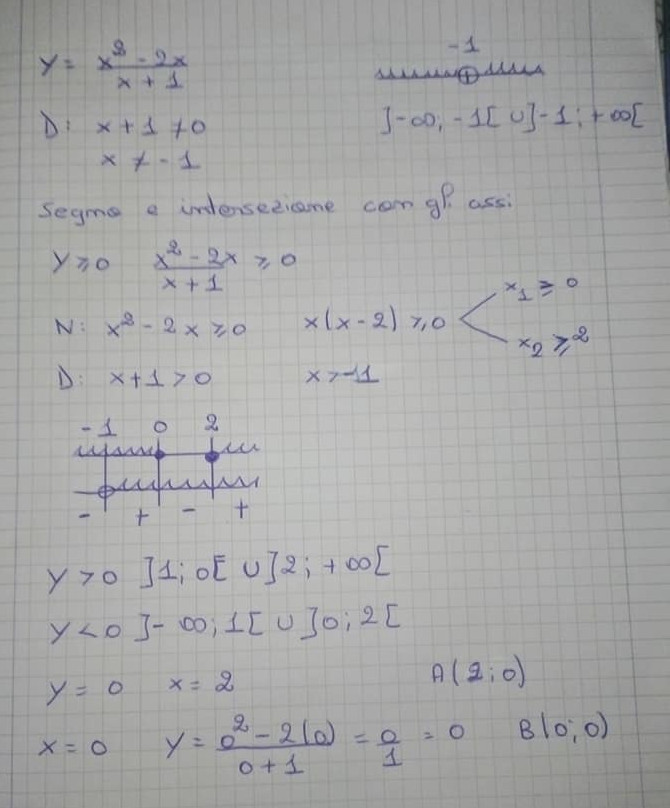 y = x² - 2x / x + 1
-1
D: x + 1 ≠ 0
]-∞; -1[ ∪ ]-1; +∞[
x ≠ -1
Segno e intersezione con gli assi
y ≥ 0 x² - 2x / x + 1 ≥ 0
N: x² - 2x ≥ 0 x(x-2) ≥ 0 x₁ ≥ 0
x₂ ≥ 2
D: x+1 > 0 x > -1
-1 0 2
- + - +
y > 0 ]1; 0[ ∪ ]2; +∞[
y < 0 ]-∞; 1[ ∪ ]0; 2[
y = 0 x = 2 A(2; 0)
x = 0 y = 0² - 2(0) / 0 + 1 = 0/1 = 0 B(0; 0)